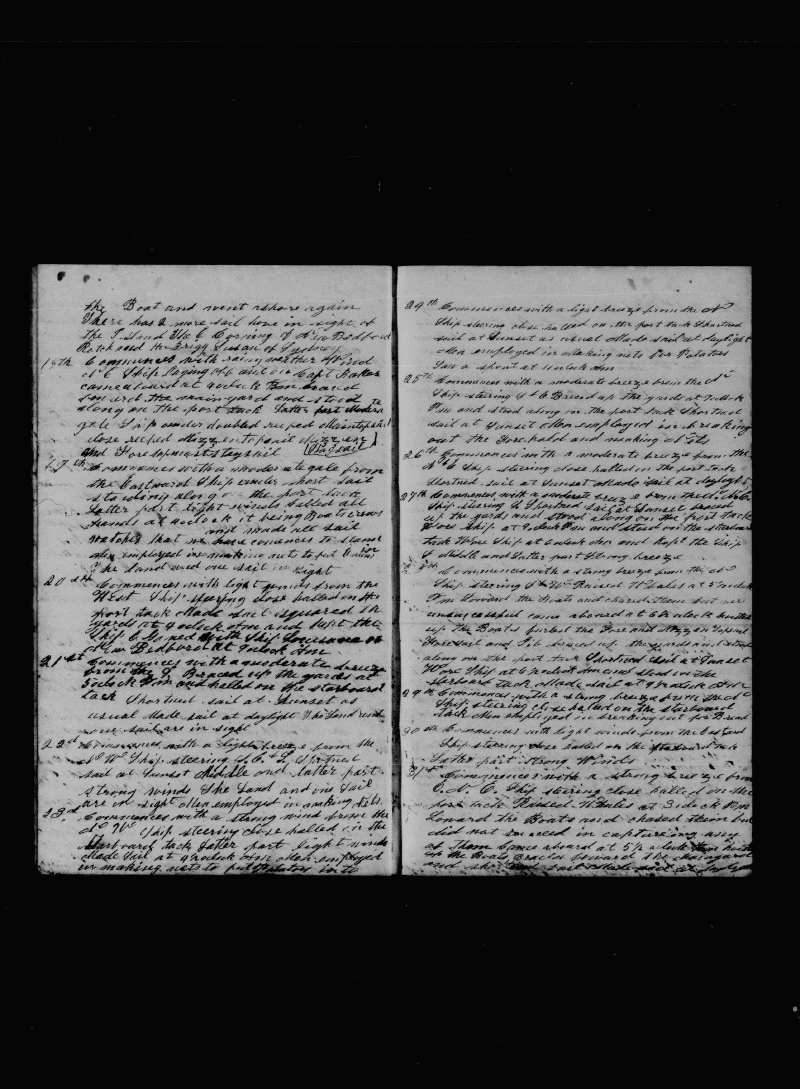 the Boat and went ashore again
There has 2 more sail hove in sight of
the Island
Brigg Susan of
18th Commences with rainy weather Wind
N E Ship Laying off and on Capt Baker
came aboard at 4 oclock
forward the main yard and stood
along on the port tack Latter part Moderate
gale Ship under doubled reefed Maintopsail
close reefed Mizzentopsail
and Foretopmaststaysail Staysail
19th Commences with a moderate gale from
the Eastward Ship under short sail
standing along on the port tack
Latter part light winds called all
hands at 4 oclock it being Boatscrews
and made all sail
watches that we have commences to stand
Men employed in making nets to put
The land and one sail in sight
20th Commences with light winds from the
West Ship steering close halled on the
port tack Made sail squared in
yards at 4 oclock Am and kept the
Ship E Gamed with Ship Lousanne of
New Bedford at 7 oclock Am
21st Commences with a moderate breeze
from the Braced up the yards at
5 oclock Pm and halled on the starboard
tack Shortned sail at Sunset as
usual Made sail at daylight The land and
four sail are in sight
22d Commences with a light breeze from the
N W Ship steering Shortned
sail at Sunset Middle and Latter part
strong winds The Land and one Sail
are in sight Men employed in making Nets
23d Commences with a strong wind from the
N W Ship steering close halled on the
starboard tack Latter part light winds
Made Sail at 4 oclock Am Men employed
in making nets to put Potatoes in to
24th Commences with a light breeze from the N
Ship steering close halled on the port tack Shortned
sail at Sunset as usual Made sail at daylight
Men employed in making nets for Potatoes
Saw a spout at 11 oclock Am
25th Commences with a moderate breeze from the N
Ship steering Braced up the yards at
Pm and stood along on the port tack Shortned
sail at Sunset Men employed in breaking
out the Forehold and making Nets
26th Commences with a moderate breeze from the
N E Ship steering close halled on the port tack
Shortned sail at Sunset Made sail at daylight
27th Commences with a moderate breeze from the
Ship steering Shortned sail at Sunset braced
up the yards and stood along on the port tack
Wore Ship at 7 oclock Pm and stood on the starboard
tack Wore Ship at oclock Am and kept the Ship
Middle and Latter part Strong breeze
28th Commences with a strong breeze from the N
Ship steering Raised Whales at 5 oclock
Pm Lowered the Boats and chased them but
unsuccessful came aboard at 6½ oclock hoisted
up the Boats furled the Fore and Mizzen Topsail
Foresail and Jib braced up the yards and stood
along on the port tack Shortned Sail at Sunset
Wore Ship at oclock Am and stood on the
starboard tack Made sail at 4 oclock Am
29th Commences with a strong breeze from the N
Ship steering close halled on the starboard
tack Men employed in breaking out for Bread
30th Commences with light winds from the Eastward
Ship steering close halled on the starboard tack
Latter part Strong Winds
31st Commences with a strong breeze from
E.N.E. Ship steering close halled on the
port tack Raised Whales at 3 oclock Pm
Lowered the Boats and chased them but
did not suceed in captureing any
of them Came aboard at 5½ oclock
up the Boats Braced forward the Mainyard
and shortned sail Made sail at daylight